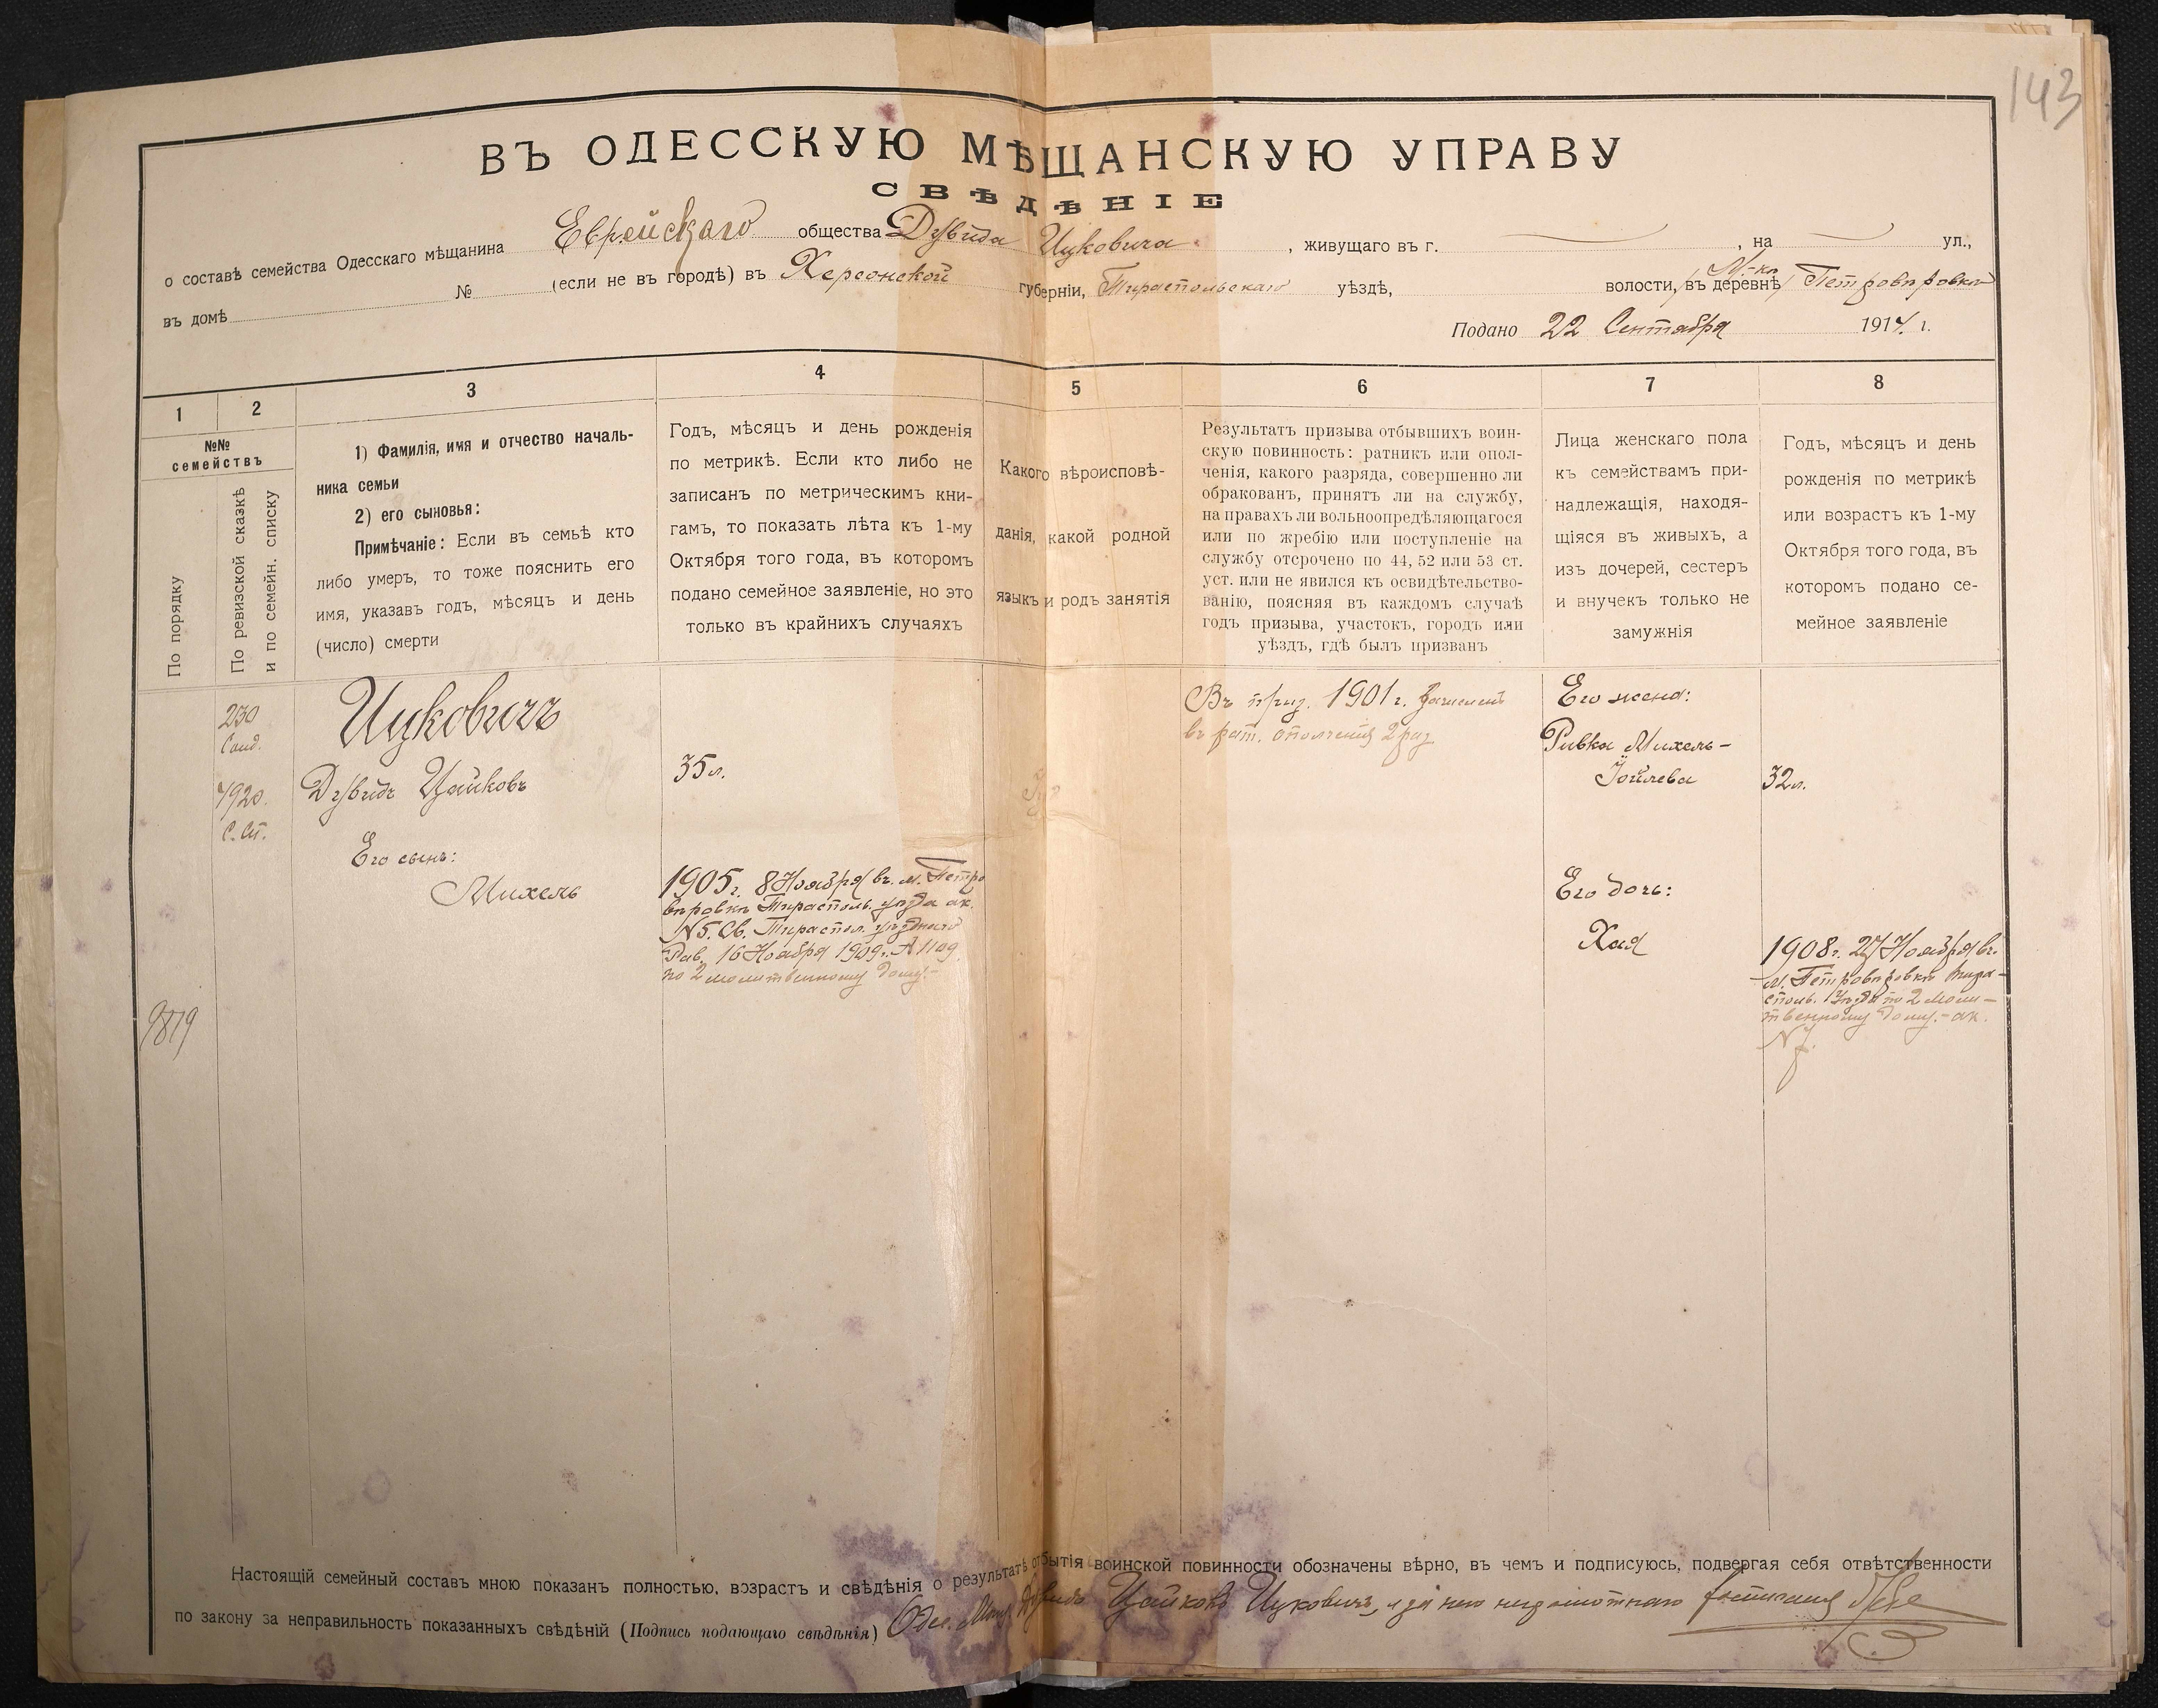 143
ВЪ ОДЕССКУЮ МѢЩАНСКУЮ УПРАВУ
СВѢДѢНІЕ
о составѣ семейства Одесскаго мѣщанина Еврейскаго общества Дувида Ицковича, живущаго въ г. , на ул.,
въ домѣ № (если не въ городѣ) въ Херсонской губерніи, Тираспольскаго уѣздѣ, волости, въ деревнѣ М-кѣ Петровѣровкѣ
Подано 22 Сентября 1914 г.
1 2 3 4 5 6 7 8
№№
семействъ
По порядку
По ревизской сказкѣ
и по семейн. списку
1) Фамилія, имя и отчество началь-
ника семьи
2) его сыновья:
Примѣчаніе: Если въ семьѣ кто
либо умеръ, то тоже пояснить его
имя, указавъ годъ, мѣсяцъ и день
(число) смерти
Годъ, мѣсяцъ и день рожденія
по метрикѣ. Если кто либо не
записанъ по метрическимъ кни-
гамъ, то показать лѣта къ 1-му
Октября того года, въ которомъ
подано семейное заявленіе, но это
только въ крайнихъ случаяхъ
Какого вѣроисповѣ-
данія, какой родной
языкъ и родъ занятія
Результатъ призыва отбывшихъ воин-
скую повинность: ратникъ или опол-
ченія, какого разряда, совершенно ли
обракованъ, принятъ ли на службу,
на правахъ ли вольноопредѣляющагося
или по жребію или поступленіе на
службу отсрочено по 44, 52 или 53 ст.
уст. или не явился къ освидѣтельство-
ванію, поясняя въ каждомъ случаѣ
годъ призыва, участокъ, городъ или
уѣздъ, гдѣ былъ призванъ
Лица женскаго пола
къ семействамъ при-
надлежащія, находя-
щіяся въ живыхъ, а
изъ дочерей, сестеръ
и внучекъ только не
замужнія
Годъ, мѣсяцъ и день
рожденія по метрикѣ
или возрастъ къ 1-му
Октября того года, въ
которомъ подано се-
мейное заявленіе
9819
230
7920.
С. Сп.
Ицковичъ
Дувидъ Ицйковъ
Его сынъ:
Михель
35 л.
1905 г. 8 Ноября въ м. Петро
вѣровкѣ Тирасполь. уѣзда ак.
N 5. Св. Тираспол. уѣзднаго
Рав. 16 Ноября 1909 г. N 1109
по 2 молитвенному дому.-
Въ приз. 1901 г. зачисленъ
въ рат. ополченія 2 раз
Его жена:
Ривка Михель-
Іойлева
Его дочь:
Хая
32 л.
1908 г. 27 Ноября въ
м. Петровѣровкѣ Тира-
споль. Уѣзда по 2 моли-
твенному дому.- ак.
N 7.
Настоящій семейный составъ мною показанъ полностью, возрастъ и свѣдѣнія о результатѣ отбытія воинской повинности обозначены вѣрно, въ чемъ и подписуюсь, подвергая себя отвѣтственности
по закону за неправильность показанныхъ свѣдѣній (Подпись подающаго свѣдѣнія) Одес. Мѣщ. Дувидъ Ицйковъ Ицковичъ, а за него неграмотнаго